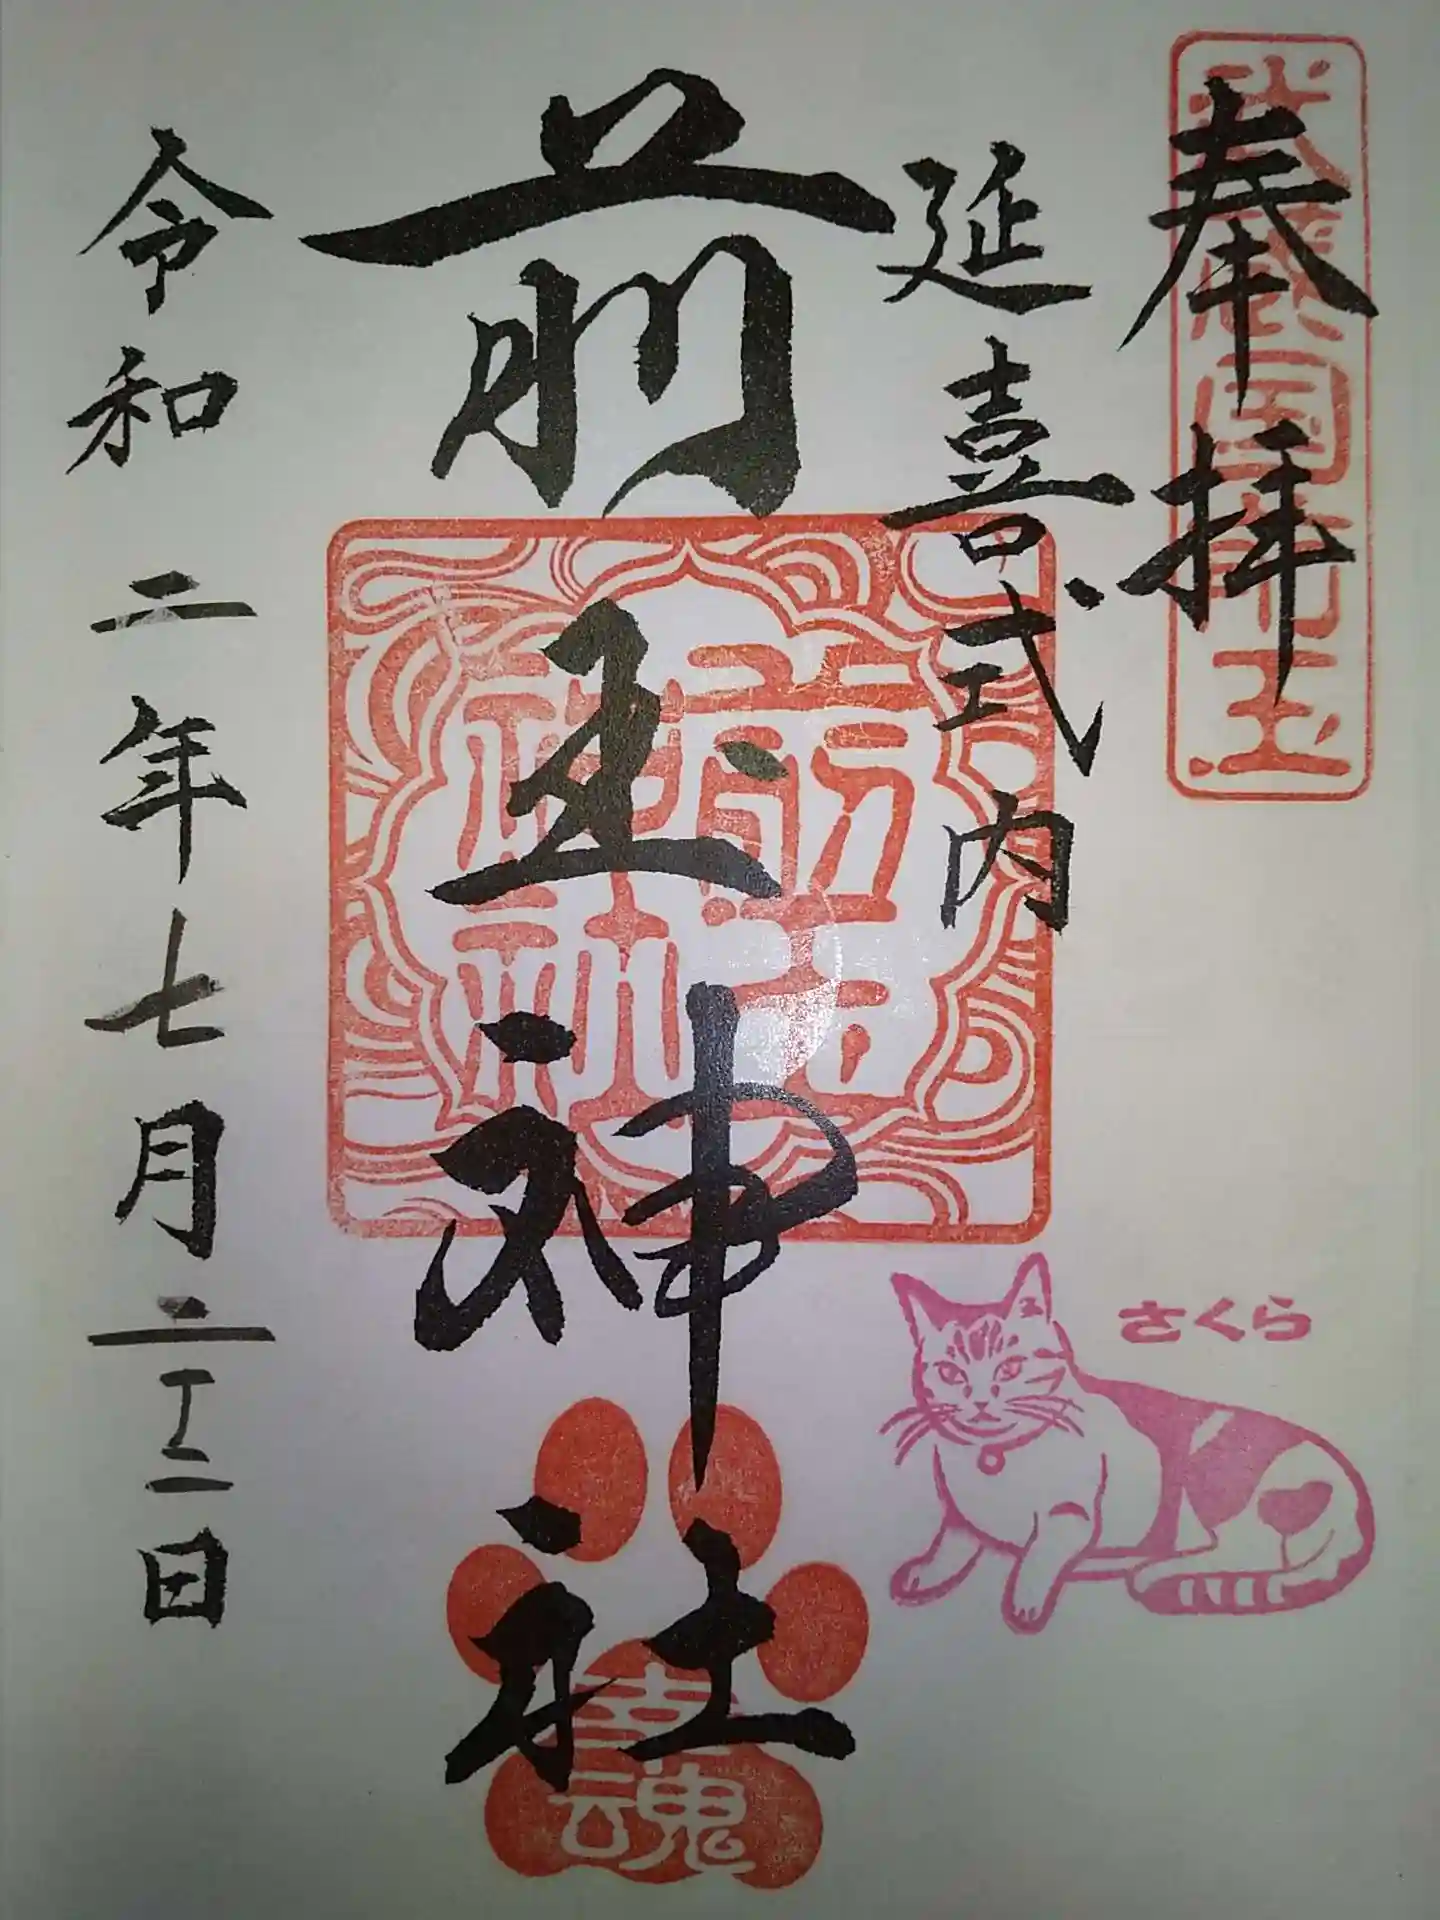 奉拝
武蔵国前玉
延喜式内
前玉神社
さくら
幸魂
令和二年七月二十二日